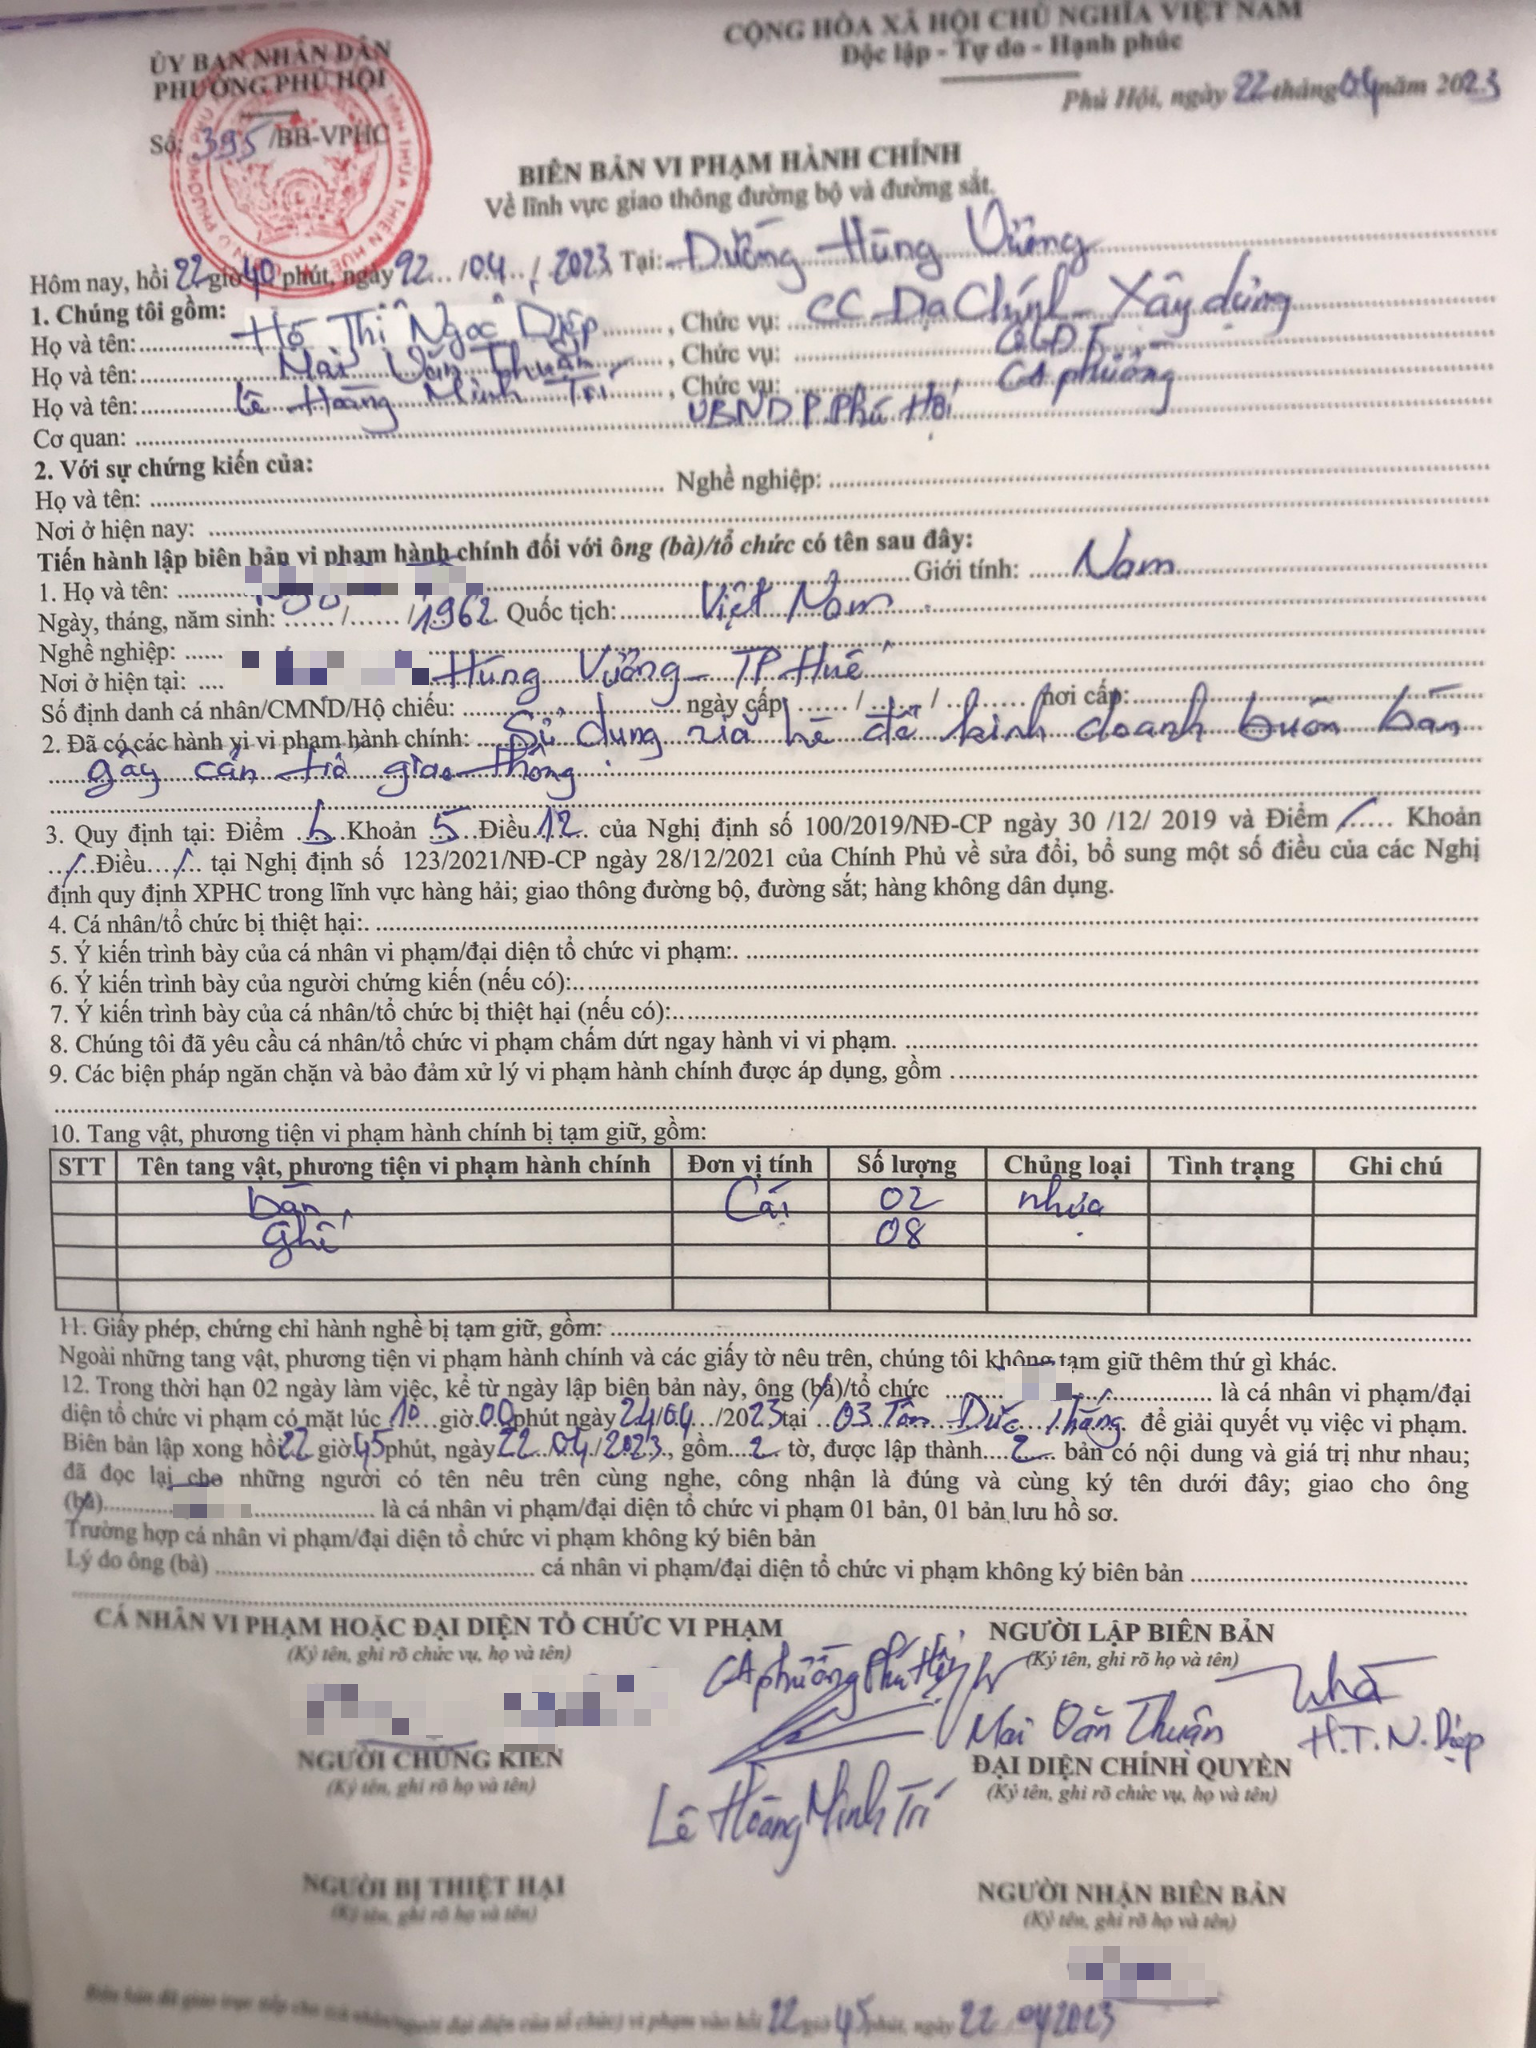 CỘNG HÒA XÃ HỘI CHỦ NGHĨA VIỆT NAM
Độc lập - Tự do - Hạnh phúc
ỦY BAN NHÂN DÂN
PHƯỜNG PHÚ HỘI
Phú Hội, ngày 22 tháng 04 năm 2023
Số: 395/BB-VPHC
BIÊN BẢN VI PHẠM HÀNH CHÍNH
Về lĩnh vực giao thông đường bộ và đường sắt.
Hôm nay, hồi 22 giờ 40 phút, ngày 22/04/2023, Tại: Đường Hùng Vương
1. Chúng tôi gồm:
Họ và tên: Hồ Thị Ngọc Diệp, Chức vụ: CC Địa Chính - Xây dựng
Họ và tên: Mai Văn Thuận, Chức vụ: QLĐT
Họ và tên: Lê Hoàng Minh Trí, Chức vụ: CA phường
Cơ quan: UBND P. Phú Hội
2. Với sự chứng kiến của:
Họ và tên: Nghề nghiệp:
Nơi ở hiện nay:
Tiến hành lập biên bản vi phạm hành chính đối với ông (bà)/tổ chức có tên sau đây:
1. Họ và tên: Giới tính: Nam
Ngày, tháng, năm sinh: ....../....../1962. Quốc tịch: Việt Nam
Nghề nghiệp:
Nơi ở hiện tại: Hùng Vương - TP Huế
Số định danh cá nhân/CMND/Hộ chiếu: ngày cấp ....../....../...... nơi cấp:
2. Đã có các hành vi vi phạm hành chính: Sử dụng vỉa hè để kinh doanh buôn bán
gây cản trở giao thông
3. Quy định tại: Điểm b Khoản 5 Điều 12 của Nghị định số 100/2019/NĐ-CP ngày 30 /12/ 2019 và Điểm / Khoản
/ Điều / tại Nghị định số 123/2021/NĐ-CP ngày 28/12/2021 của Chính Phủ về sửa đổi, bổ sung một số điều của các Nghị
định quy định XPHC trong lĩnh vực hàng hải; giao thông đường bộ, đường sắt; hàng không dân dụng.
4. Cá nhân/tổ chức bị thiệt hại:
5. Ý kiến trình bày của cá nhân vi phạm/đại diện tổ chức vi phạm:
6. Ý kiến trình bày của người chứng kiến (nếu có):
7. Ý kiến trình bày của cá nhân/tổ chức bị thiệt hại (nếu có):
8. Chúng tôi đã yêu cầu cá nhân/tổ chức vi phạm chấm dứt ngay hành vi vi phạm.
9. Các biện pháp ngăn chặn và bảo đảm xử lý vi phạm hành chính được áp dụng, gồm
10. Tang vật, phương tiện vi phạm hành chính bị tạm giữ, gồm:
STT Tên tang vật, phương tiện vi phạm hành chính Đơn vị tính Số lượng Chủng loại Tình trạng Ghi chú
bàn Cái 02 nhựa
ghế 08
11. Giấy phép, chứng chỉ hành nghề bị tạm giữ, gồm:
Ngoài những tang vật, phương tiện vi phạm hành chính và các giấy tờ nêu trên, chúng tôi không tạm giữ thêm thứ gì khác.
12. Trong thời hạn 02 ngày làm việc, kể từ ngày lập biên bản này, ông (bà)/tổ chức là cá nhân vi phạm/đại
diện tổ chức vi phạm có mặt lúc 10 giờ 00 phút ngày 24/04/2023 tại 03 Tôn Đức Thắng để giải quyết vụ việc vi phạm.
Biên bản lập xong hồi 22 giờ 45 phút, ngày 22/04/2023, gồm 2 tờ, được lập thành 2 bản có nội dung và giá trị như nhau;
đã đọc lại cho những người có tên nêu trên cùng nghe, công nhận là đúng và cùng ký tên dưới đây; giao cho ông
(bà) là cá nhân vi phạm/đại diện tổ chức vi phạm 01 bản, 01 bản lưu hồ sơ.
Trường hợp cá nhân vi phạm/đại diện tổ chức vi phạm không ký biên bản
Lý do ông (bà) cá nhân vi phạm/đại diện tổ chức vi phạm không ký biên bản
CÁ NHÂN VI PHẠM HOẶC ĐẠI DIỆN TỔ CHỨC VI PHẠM
(Ký tên, ghi rõ chức vụ, họ và tên)
NGƯỜI LẬP BIÊN BẢN
(Ký tên, ghi rõ họ và tên)
CA phường Phú Hội
Mai Văn Thuận
H.T.N. Diệp
NGƯỜI CHỨNG KIẾN
(Ký tên, ghi rõ họ và tên)
ĐẠI DIỆN CHÍNH QUYỀN
(Ký tên, ghi rõ chức vụ, họ và tên)
Lê Hoàng Minh Trí
NGƯỜI BỊ THIỆT HẠI
(Ký tên, ghi rõ họ và tên)
NGƯỜI NHẬN BIÊN BẢN
(Ký tên, ghi rõ họ và tên)
Biên bản đã giao trực tiếp cho cá nhân/người đại diện của tổ chức) vi phạm vào hồi 22 giờ 45 phút, ngày 22/04/2023